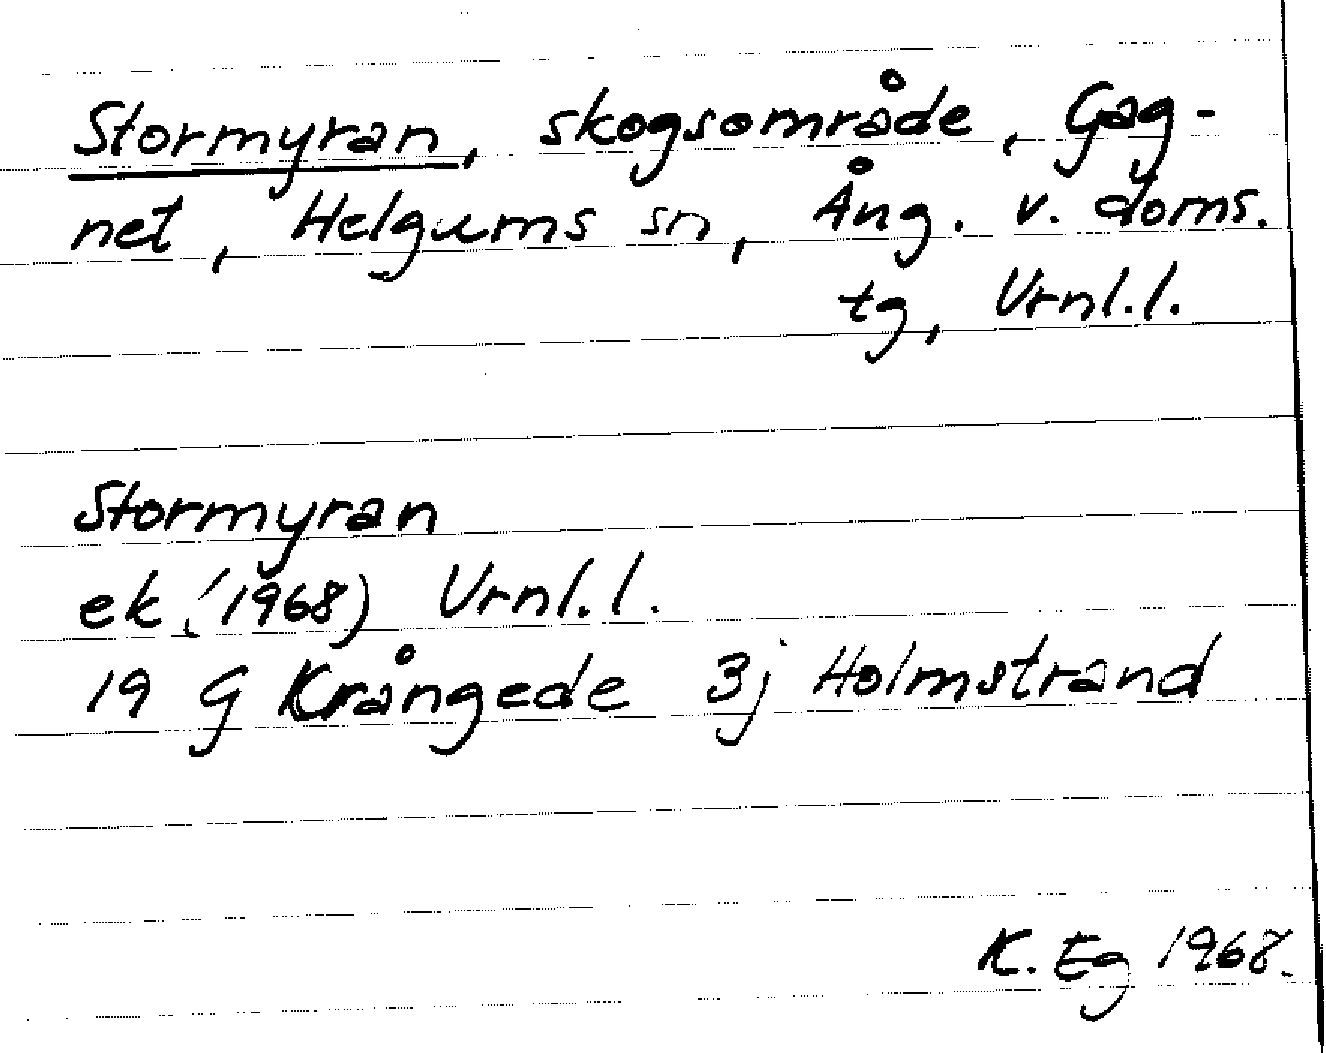 Stormyran, skogsområde, Gag-
net, Helgums sn, Ång. v. doms.
tg, Vrnl.l.
Stormyran
ek. (1968) Vrnl.l.
19 G Krångede 3j Holmstrand
K. Eg 1968.